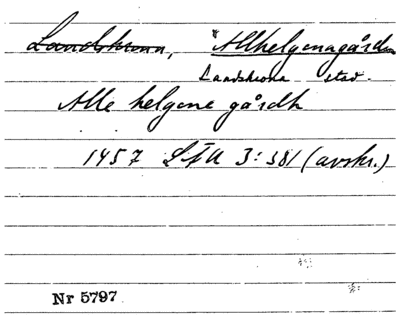 Landskrona, *Allhelgenagården
Landskrona stad.
Alle helgene gårdh
1457 LFU 3:381 (avskr.)
Nr 5797